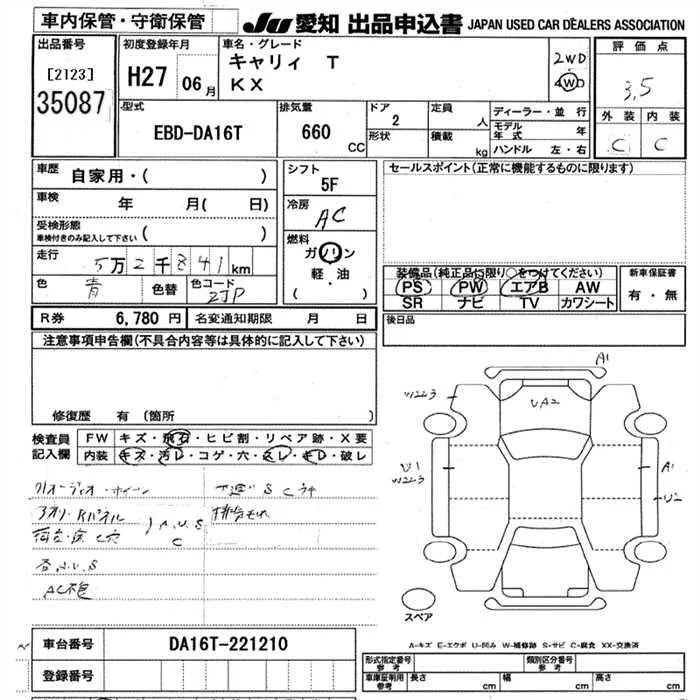 車内保管・守衛保管
JU 愛知 出品申込書 JAPAN USED CAR DEALERS ASSOCIATION
出品番号
[2123]
35087
初度登録年月
H27 06月
車名・グレード
キャリィ T
KX
2WD
4WD
評価点
3.5
外装 内装
C C
型式
EBD-DA16T
排気量
660 CC
ドア
2
形状
定員
人
積載
kg
ディーラー・並行
モデル年式 年
ハンドル 左・右
車歴
自家用・( )
車検
年 月( 日)
受検形態
車検付きのみ記入して下さい ( )
走行
5万2千841km
色
青
色替
色コード
ZJP
シフト
5F
冷房
AC
燃料
ガソリン
軽・油
( )
セールスポイント(正常に機能するものに限ります)
装備品(純正品に限り○をつけてください)
PS PW エアB AW
SR ナビ TV カワシート
新車保証書
有・無
R券 6,780円 名変通知期限 月 日
後日品
注意事項申告欄(不具合内容等は具体的に記入して下さい)
修復歴 有 (箇所
検査員記入欄
FW キズ・飛石・ヒビ割・リペア跡・X要
内装 キズ・汚レ・コゲ・穴・スレ・キレ・破レ
A.U.S
C
AC不良
A1
W223
UA2
U1
W223
A1
U2
スペア
A-キズ E-エクボ U-凹み W-補修跡 S-サビ C-腐食 XX-交換済
車台番号 DA16T-221210
登録番号
形式指定番号 参考
類別区分番号 参考
車庫証明用 参考
長さ cm
幅 cm
高さ cm